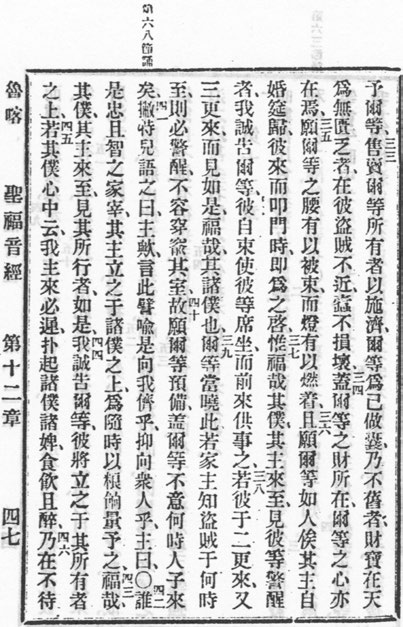 第六八節誦
予爾等、三三售賣爾等所有者以施濟爾等爲已做囊乃不舊者、財寶在天
爲無匱乏者在彼盜賊不近蠹不損壞三四蓋爾等之財所在爾等之心亦
在焉、三五願爾等之腰有以被束而燈有以燃着三六且願爾等如人俟其主自
婚筵歸彼來而叩門時即爲之啓惟三七福哉其僕其主來至見彼等警醒
者我誠告爾等彼自束使彼等席坐而前來供事之三八若彼于二更來又
三更來而見如是福哉其諸僕也三九爾等當曉此若家主知盜賊于何時
至則必警醒不容穿窬其室四十故願爾等預備蓋爾等不意何時人子來
矣、四一撇特兒語之曰主歟言此譬喻是向我儕乎抑向衆人乎主曰〇四二誰
是忠且智之家宰其主立之于諸僕之上爲隨時以糧餉量予之四三福哉
其僕其主來至見其所行者如是四四我誠告爾等彼將立之于其所有者
之上四五若其僕心中云我主來必遲扑起諸僕諸婢食飲且醉、四六乃在不待
魯喀 聖福音經 第十二章 四七